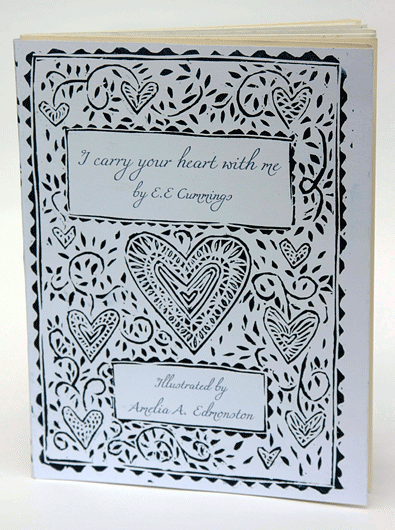 I carry your heart with me
by E.E Cummings
Illustrated by
Amelia A. Edmonston